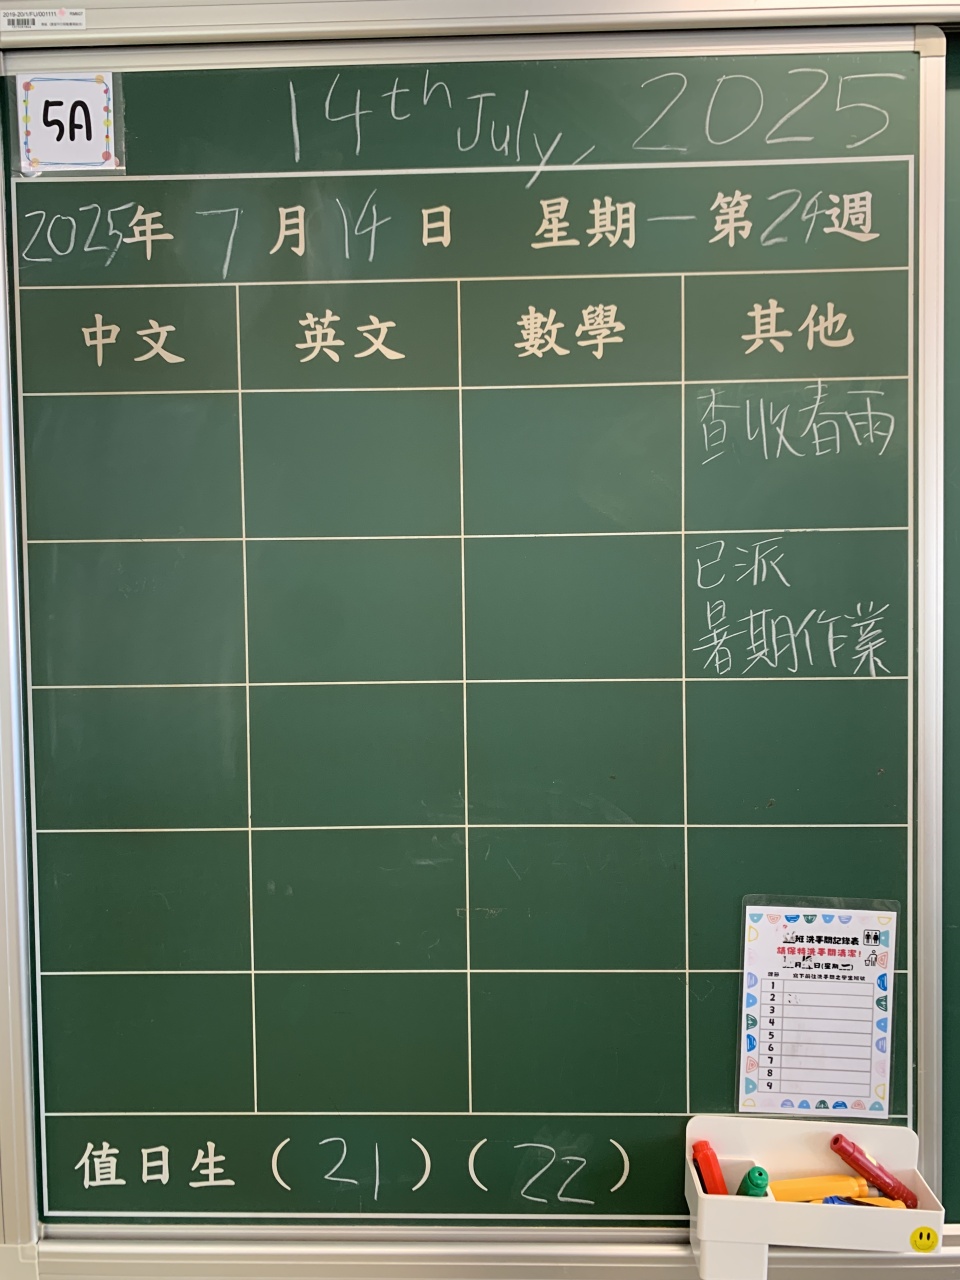 2019-20/1/FU/001111
5A
14th July, 2025
2025年 7月14日 星期一第24週
中文 英文 數學 其他
查收春雨
已派
暑期作業
班洗手間記錄表
請保持洗手間清潔!
月 日(星期 )
1
2
3
4
5
6
7
8
9
值日生(21)(22)